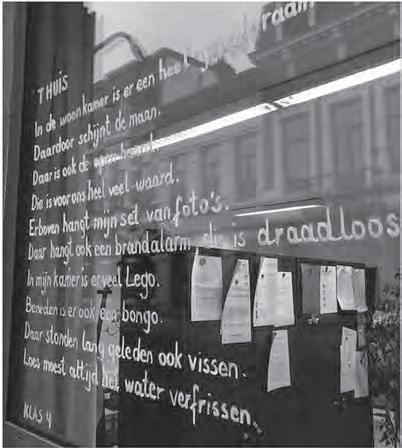 THUIS
In de woonkamer is er een heel groot raam.
Daardoor schijnt de maan.
Daar is ook de open haard.
Die is voor ons heel veel waard.
Erboven hangt mijn set van foto's.
Daar hangt ook een brandalarm, die is draadloos
In mijn kamer is er veel Lego.
Beneden is er ook een bongo.
Daar stonden lang geleden ook vissen.
Loes moest altijd het water verfrissen.
KLAS 4